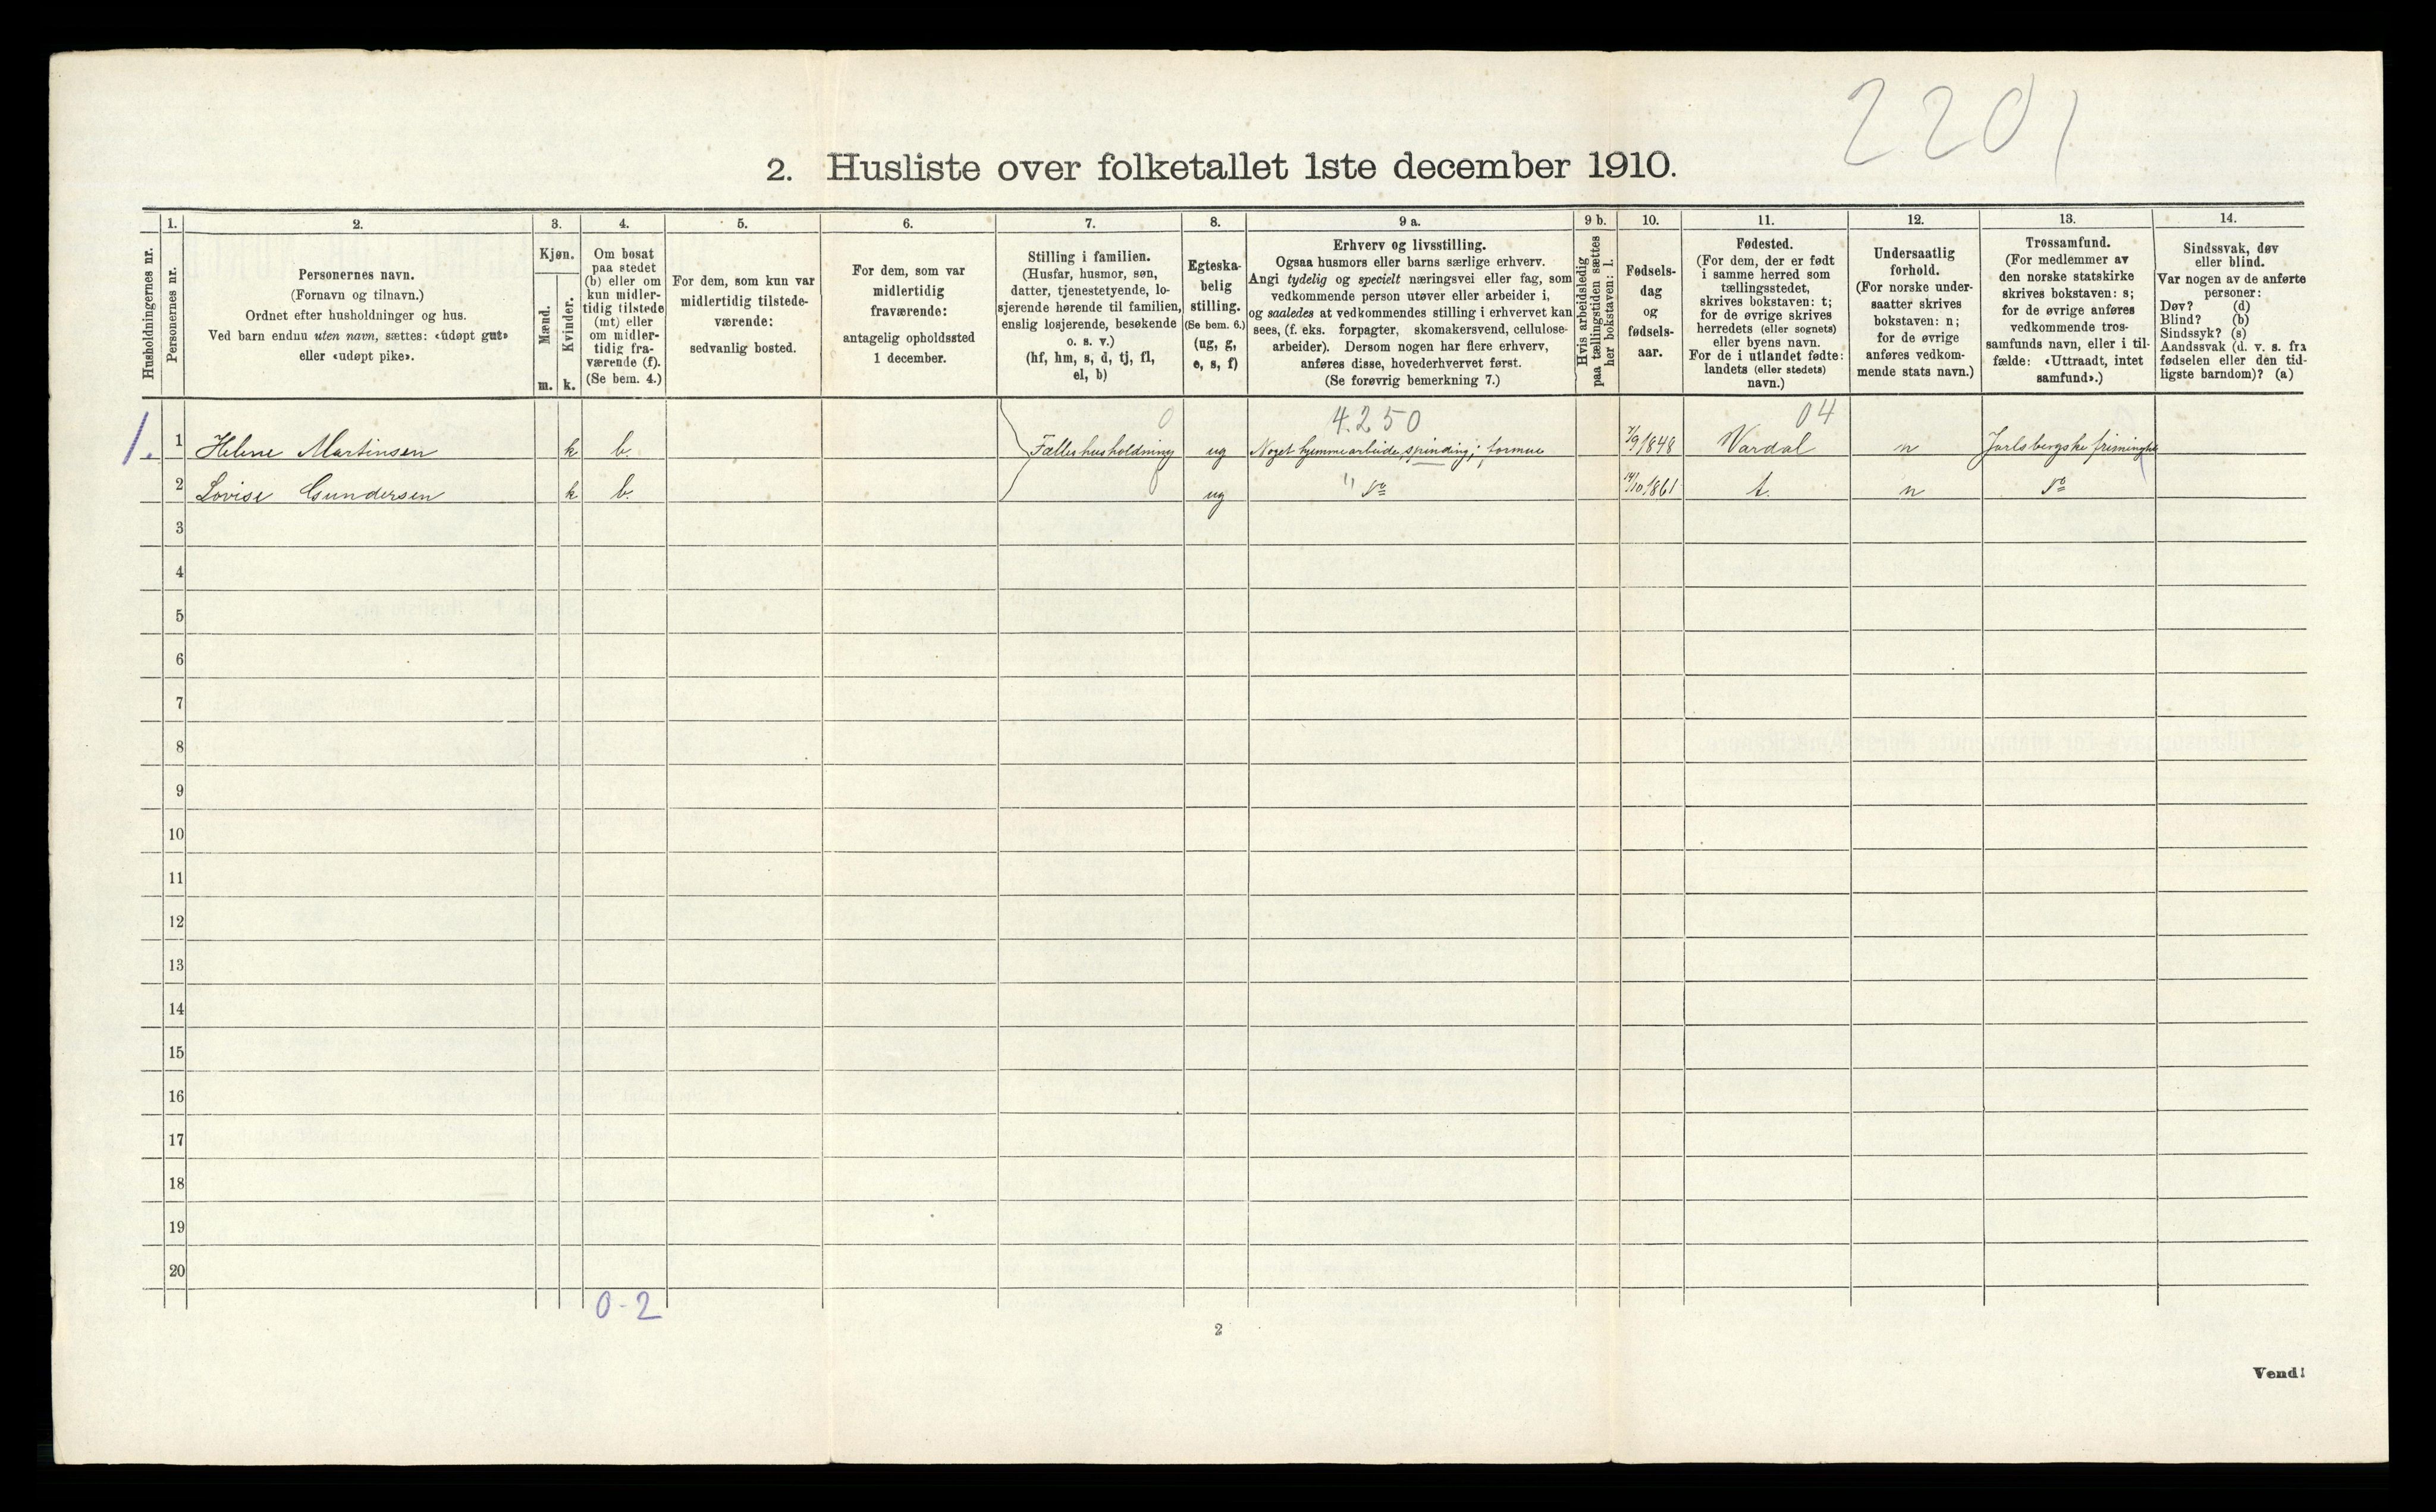 2201
2. Husliste over folketallet 1ste december 1910.
Husholdningernes nr.
1.
Personernes nr.
2.
Personernes navn.
(Fornavn og tilnavn.)
Ordnet efter husholdninger og hus.
Ved barn endnu uten navn, sættes: «udøpt gut»
eller «udøpt pike».
3.
Kjøn.
Mænd.
Kvinder.
m.
k.
4.
Om bosat
paa stedet
(b) eller om
kun midler-
tidig tilstede
(mt) eller
om midler-
tidig fra-
værende (f).
(Se bem. 4.)
5.
For dem, som kun var
midlertidig tilstede-
værende:
sedvanlig bosted.
6.
For dem, som var
midlertidig
fraværende:
antagelig opholdssted
1 december.
7.
Stilling i familien.
(Husfar, husmor, søn,
datter, tjenestetyende, lo-
sjerende hørende til familien,
enslig losjerende, besøkende
o. s. v.)
(hf, hm, s, d, tj, fl,
el, b)
8.
Egteska-
belig
stilling.
(Se bem. 6.)
(ug, g,
e, s, f)
9 a.
Erhverv og livsstilling.
Ogsaa husmors eller barns særlige erhverv.
Angi tydelig og specielt næringsvei eller fag, som
vedkommende person utøver eller arbeider i,
og saaledes at vedkommendes stilling i erhvervet kan
sees, (f. eks. forpagter, skomakersvend, cellulose-
arbeider). Dersom nogen har flere erhverv,
anføres disse, hovederhvervet først.
(Se forøvrig bemerkning 7.)
9 b.
Hvis arbeidsledig
paa tællingstiden sættes
her bokstaven: l.
10.
Fødsels-
dag
og
fødsels-
aar.
11.
Fødested.
(For dem, der er født
i samme herred som
tællingsstedet,
skrives bokstaven: t;
for de øvrige skrives
herredets (eller sognets)
eller byens navn.
For de i utlandet fødte:
landets (eller stedets)
navn.)
12.
Undersaatlig
forhold.
(For norske under-
saatter skrives
bokstaven: n;
for de øvrige
anføres vedkom-
mende stats navn.)
13.
Trossamfund.
(For medlemmer av
den norske statskirke
skrives bokstaven: s;
for de øvrige anføres
vedkommende tros-
samfunds navn, eller i til-
fælde: «Uttraadt, intet
samfund».)
14.
Sindssvak, døv
eller blind.
Var nogen av de anførte
personer:
Døv? (d)
Blind? (b)
Sindssyk? (s)
Aandssvak (d. v. s. fra
fødselen eller den tid-
ligste barndom)? (a)
0 4.250 04
1. 1 Helene Martinsen k b. Fælles husholdning ug Noget hjemmearbeide, spinding; formue 7/9 1848 Vardal n Jarlsbergske frimenighe
2 Lovise Gundersen k b. 0 ug " do 14/10 1861 t. n do
3
4
5
6
7
8
9
10
11
12
13
14
15
16
17
18
19
20
0-2
2
Vend!